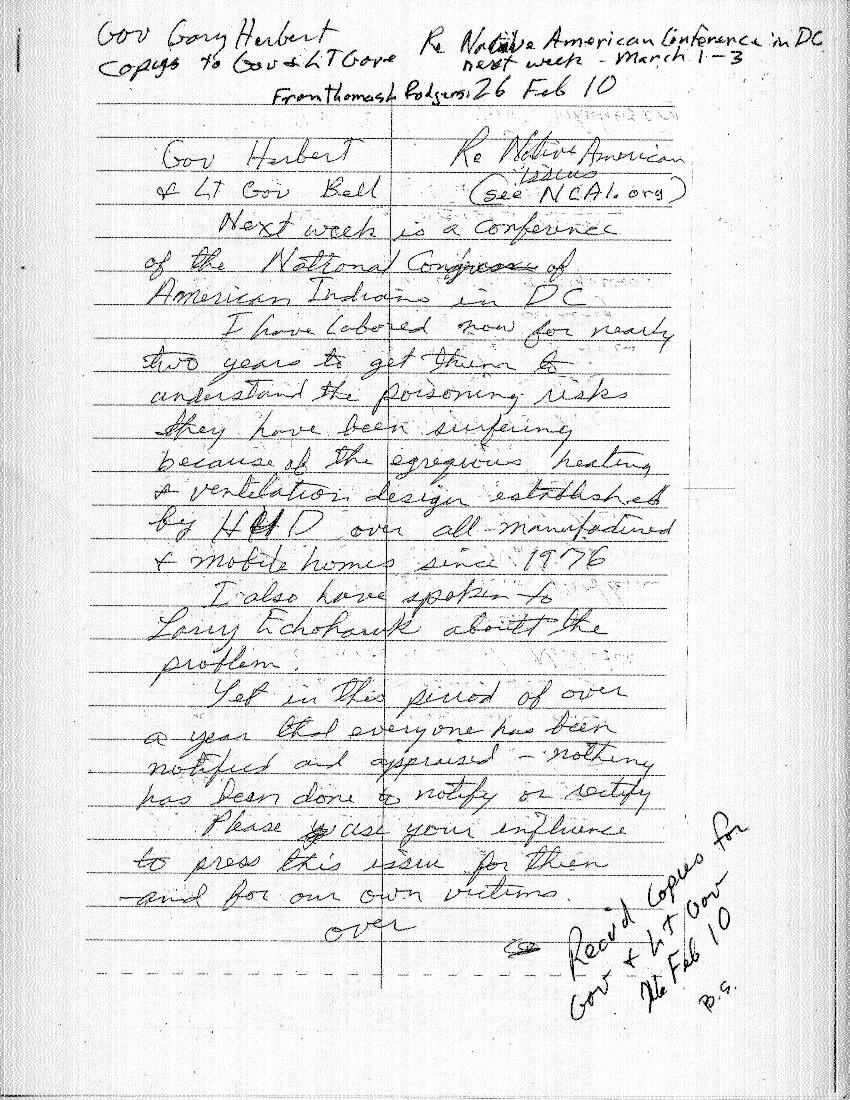 Gov Gary Herbert
Copys to Gov & LT Gove
Re Native American Conference in DC
next week - March 1-3
From Thomas L Rodgers: 26 Feb 10
Gov Herbert
& Lt Gov Bell
Re Native American
issues
(see NCAI.org)
Next week is a conference
of the National Congress of
American Indians in DC
I have labored now for nearly
two years to get them to
understand the poisoning risks
they have been surfering
because of the egregious heating
& ventilation design established
by HUD over all manufactured
& mobile homes since 1976
I also have spoken to
Larry Echohawk aboutt the
problem.
Yet in this period of over
a year that everyone has been
notified and appraised - nothing
has been done to notify or rectify
Please use your influence
to press this issue for them
and for our own victims.
over
Recv'd Copies for
Gov & Lt Gov
26 Feb 10
B.G.